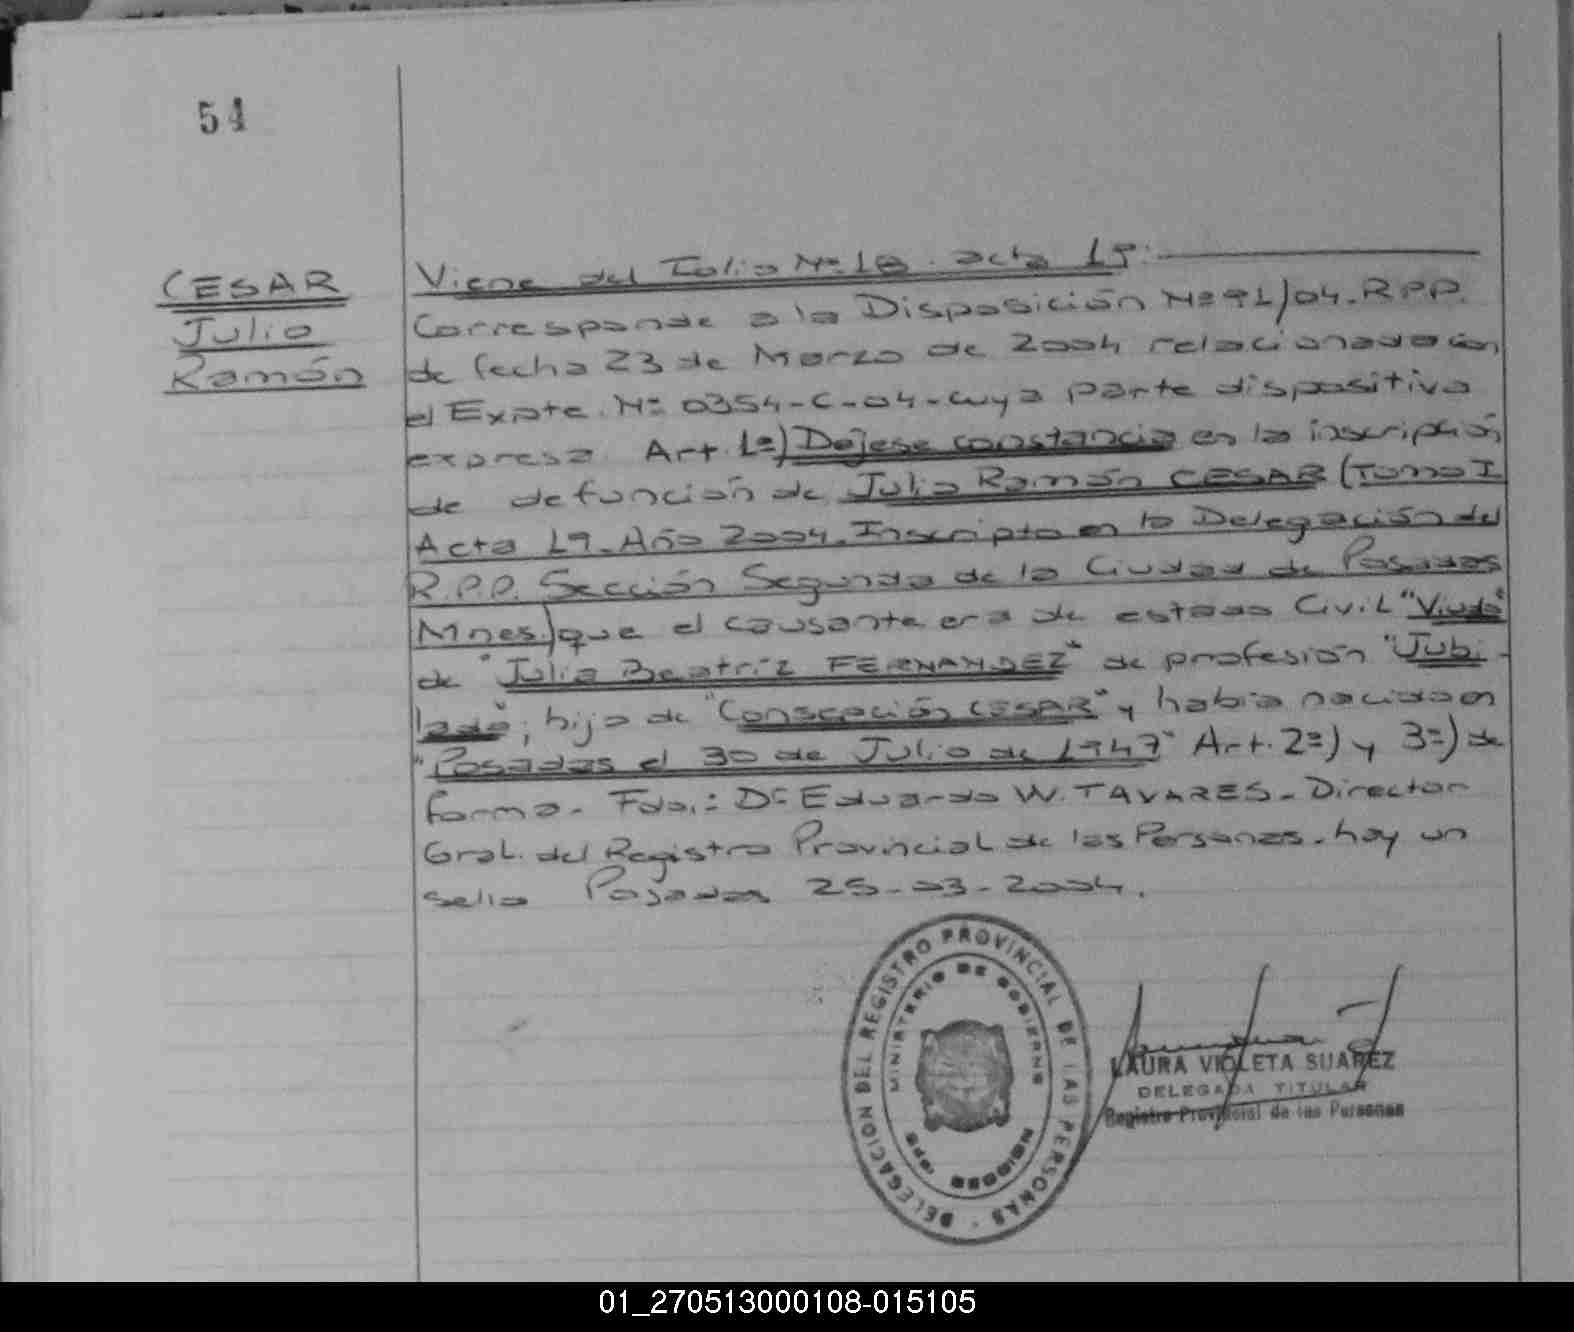 54
CESAR
Julio
Ramón
Viene del Folio Nº 10. acta 19.
Corresponde a la Disposición Nº 91/04. R.P.P.
de fecha 23 de Marzo de 2004 relacionada con
el Expte. Nº 0354-C-04-cuya parte dispositiva
expresa Art. 1º) Dejese constancia en la inscripción
de defunción de Julio Ramón CESAR (Tomo I
Acta 19. Año 2004. Inscripta en la Delegación del
R.P.P. Sección Segunda de la Ciudad de Posadas
Mnes.) que el causante era de estado Civil "Viudo"
de "Julia Beatríz FERNANDEZ" de profesión "Jubi-
lado"; hijo de "Consepción CESAR" y había nacido en
"Posadas el 30 de Julio de 1947" Art. 2º) y 3º) de
forma. Fdo.: Dº Eduardo W. TAVARES. Director
Gral. del Registro Provincial de las Personas. hay un
sello Posadas 25-03-2004.
DELEGACION DEL REGISTRO PROVINCIAL DE LAS PERSONAS
MINISTERIO DE GOBIERNO
LAURA VIOLETA SUAREZ
DELEGADA TITULAR
Registro Provincial de las Personas
01_270513000108-015105